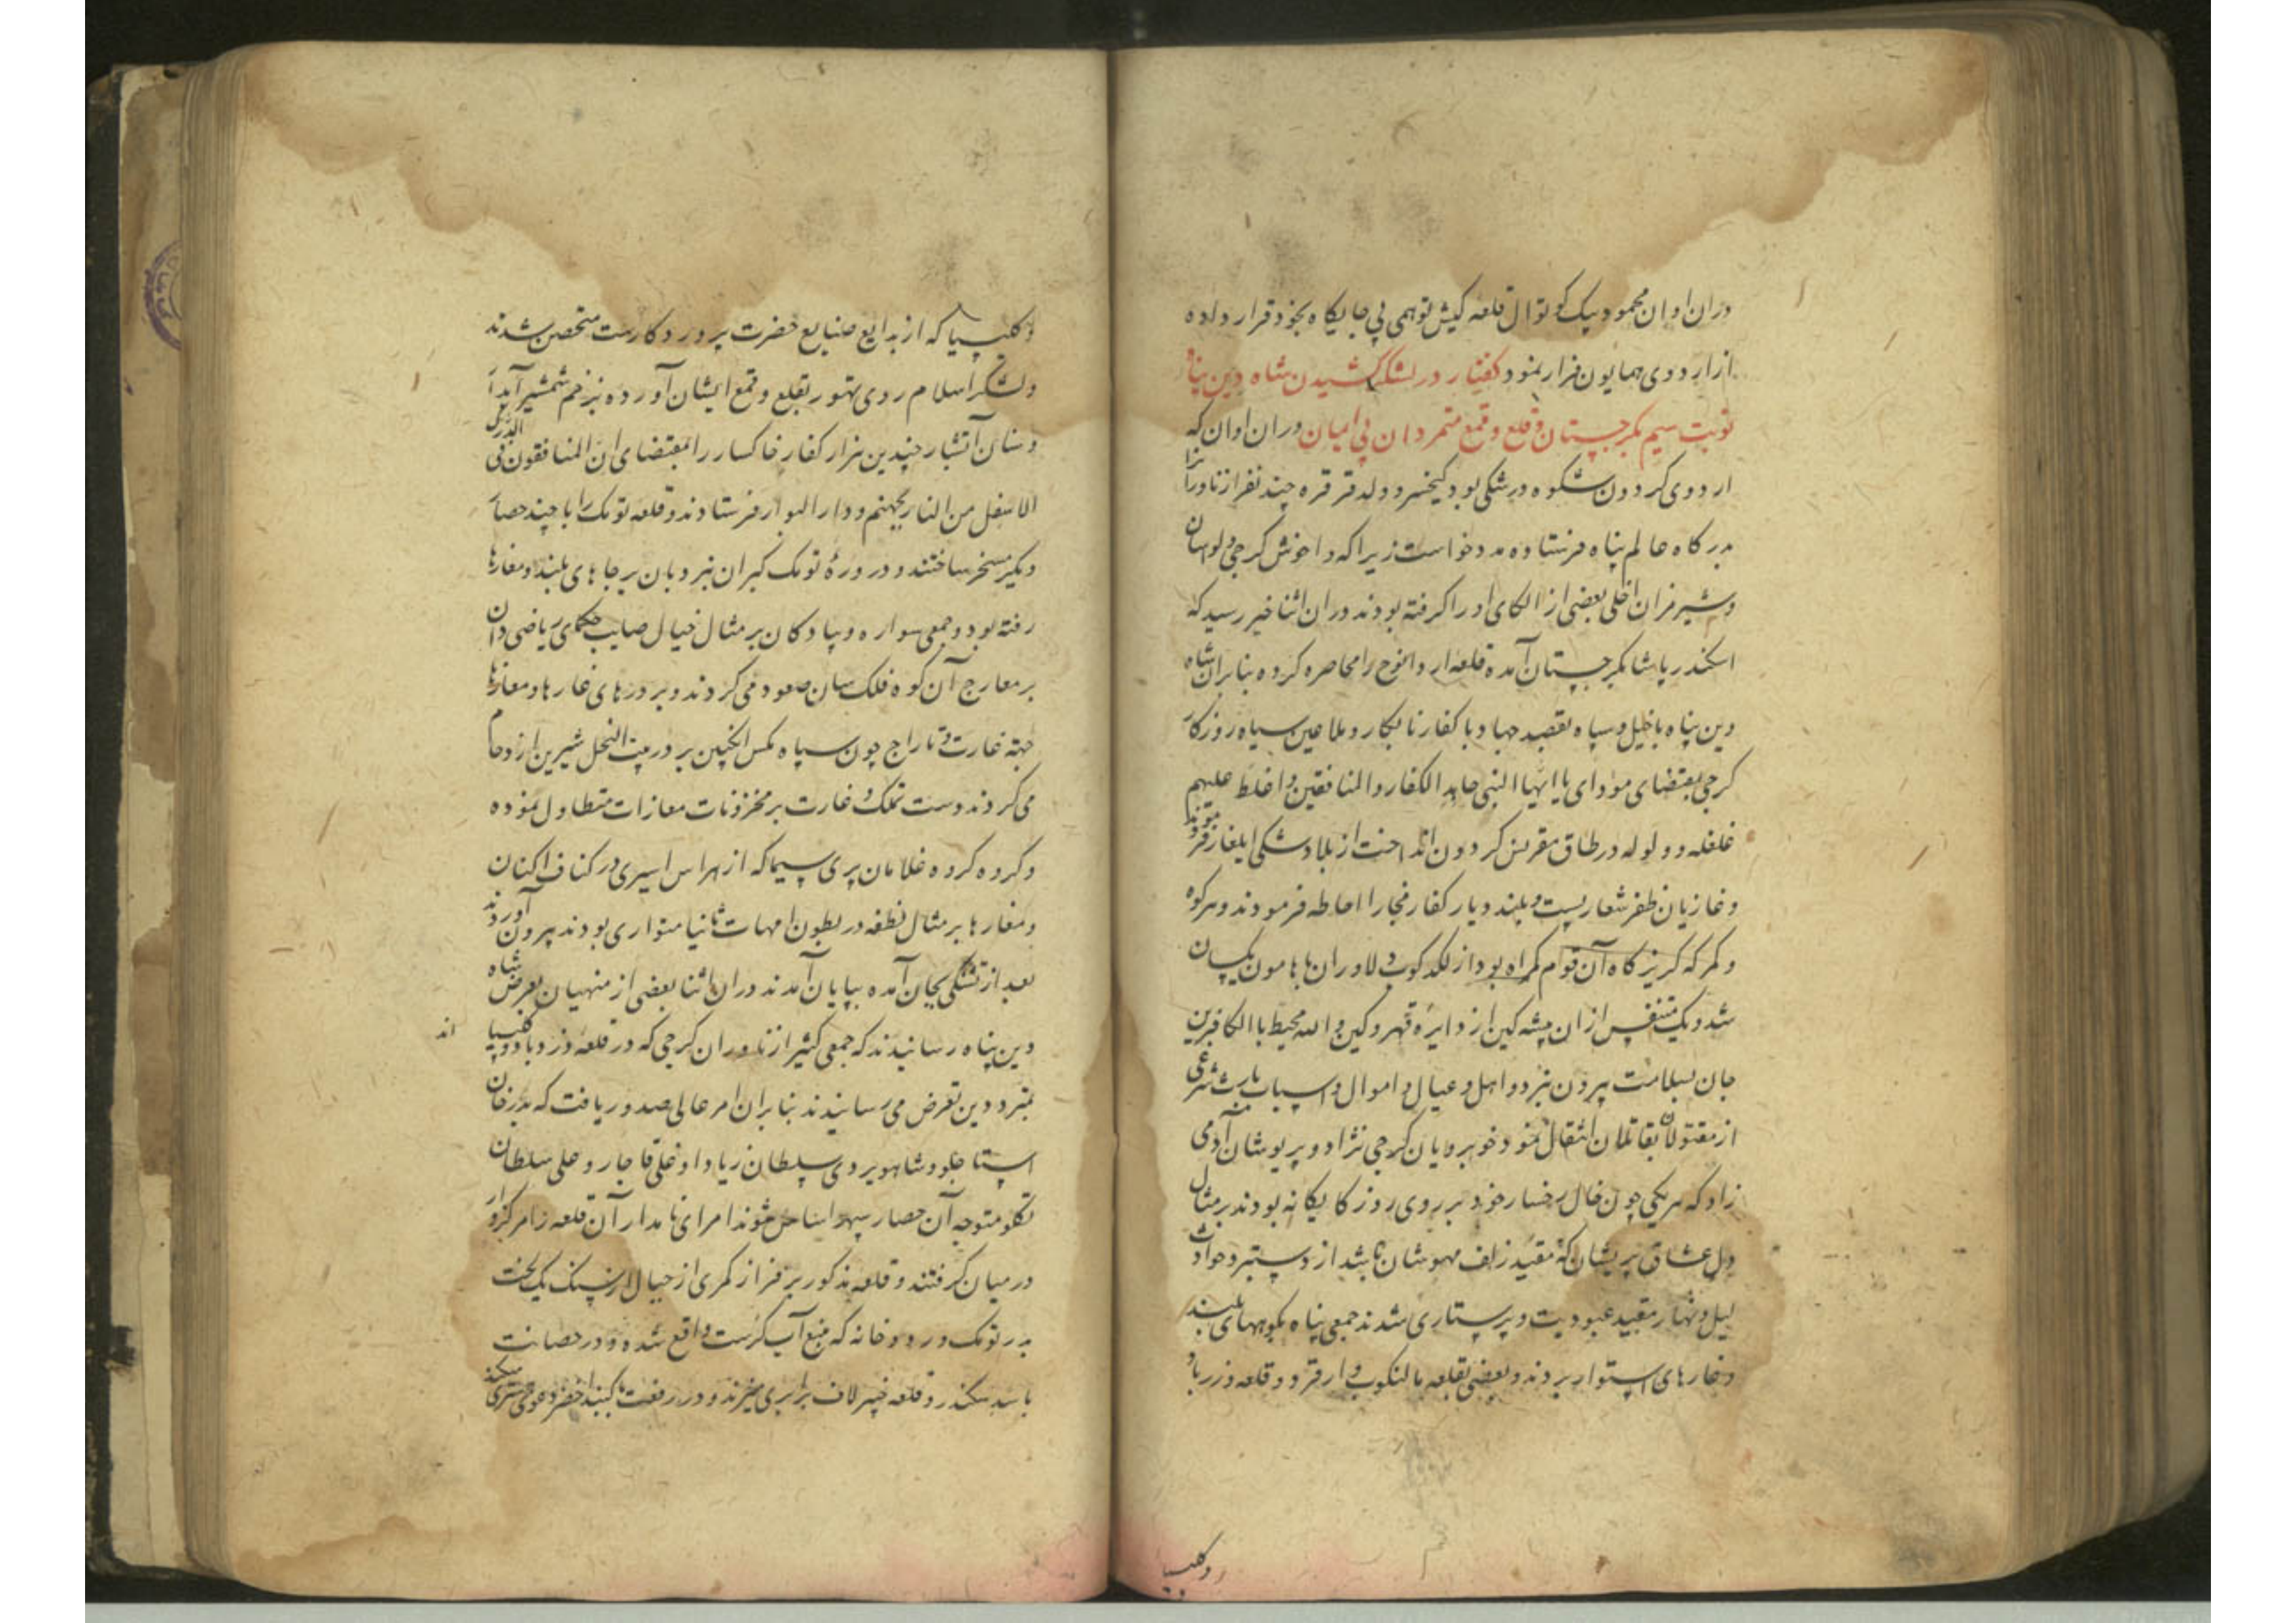 دران اوان محمود بیک کوتوال قلعه کیش توهمی بی جایکاه بخود قرار داده
از اردوی همایون فرار نمود کفتار در لشکر کشیدن شاه دین پناه
نوبت سیم بکرجستان و قلع و قمع متمردان بی ایمان دران اوان که
اردوی کردون شکوه در شکی بود کیخسرو ولد قرقره چند نفر از تاوران را
بدرکاه عالم پناه فرستاده مدد خواست زیرا که داخوش کرجی و لوسان
و شیرمزان اغلی بعضی از الکای او را کرفته بودند دران اثنا خبر رسید که
اسکندر پاشا بکرجستان آمده قلعه اردانوج را محاصره کرده بنابران شاه
دین پناه با خیل و سپاه بقصد جهاد با کفار نابکار و ملاعین سیاه روزکار
کرجی بمقتضای مودای یا ایها النبی جاهد الکفار والمنافقین واغلظ علیهم
غلغله و ولوله در طاق مقرنس کردون انداخت از بلاد شکی ایلغار فرمودند
و غازیان ظفر شعار پست و بلند دیار کفار فجار را احاطه فرمودند و هر کوه
و کمر که کریزکاه آن قوم کمراه بود از لکدکوب دلاوران با هامون یکسان
شد و یک متنفس ازان پیشه کین از دایرهٔ قهر و کین والله محیط بالکافرین
جان بسلامت بیرون نبرد و اهل و عیال و اموال و اسباب بارث شرعی
از مقتولان بقاتلان انتقال نمود خوبرویان کرجی نژاد و پریوشان آدمی
زاد که هر یکی چون خال رخسار خود بر روی روزکار یکانه بودند بر مثال
دل عشاق پریشان که مقید زلف مهوشان باشد از دستبرد حوادث
لیل و نهار مقید عبودیت و پرستاری شدند جمعی پناه بکوههای بلند
و غارهای استوار بردند و بعضی بقلعه مالنکوب و ارقرو و قلعه درزباد
و کلیسیا
و کلیسیا که از بدایع صنایع حضرت پروردکارست متحصن شدند
و لشکر اسلام روی تهور بقلع و قمع ایشان آورده بزخم شمشیر آبدار
و سنان آتشبار چندین هزار کفار خاکسار را بمقتضای ان المنافقون فی الدرک
الاسفل من النار بجهنم و دار البوار فرستادند و قلعه تومک را با چند حصار
دیکر مسخر ساختند و در درهٔ تومک کبران بنردبان بر جاهای بلند و مغارها
رفته بود و جمعی سواره و پیادکان بر مثال خیال صایب حکمای ریاضی دان
بر معارج آن کوه فلک سان صعود می کردند و بر درهای غارها و مغارها
جهة غارت و تاراج چون سپاه مکس انکبین بر در بیت النحل شیرین ازدحام
می کردند دست تملک و غارت بر مخزونات مغارات متطاول نموده
و کروه کروه غلامان پری سیما که از هراس اسیری در کناف اکنان
و مغارها بر مثال نطفه در بطون امهات ثانیا متواری بودند بیرون آوردند
بعد از تشنکی بجان آمده بپایان آمدند دران اثنا بعضی از منهیان بعرض شاه
دین پناه رسانیدند که جمعی کثیر از تاوران کرجی که در قلعه درزباد و کلیسیا اند
بمترددین تعرض می رسانیدند بنابران امر عالی صدور یافت که بدر خان
استاجلو و شاهویردی سلطان زیاد اوغلی قاجار و علی سلطان
تکلو متوجه آن حصار سپهر اساس شوند امرای نامدار آن قلعه را مرکزوار
در میان کرفتند و قلعه مذکور بر فراز کمری از جبال از سنک یک لخت
بدر تومک رودخانه که منبع آب کرست واقع شده و در حصانت
با سد سکندر و قلعه خیبر لاف برابری میزند و در رفعت با کنبد اخضر دعوی همسری میکند